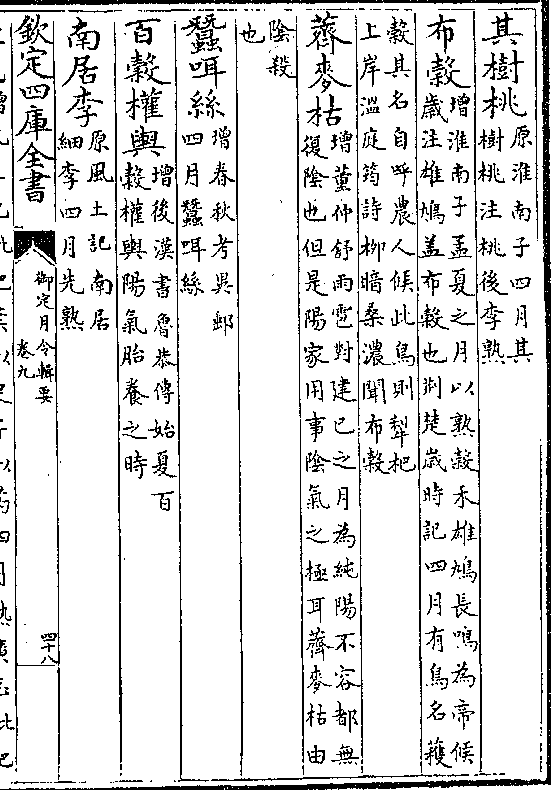 其樹桃原淮南子四月其樹桃注桃後李熟
布穀增淮南子孟夏之月以熟穀禾雄鳩長鳴為帝候歲注雄鳩蓋布穀也荆楚歲時記四月有鳥名穫
穀其名自呼農人候此鳥則犂杷上岸溫庭筠詩柳暗桑濃聞布穀
薺麥枯增董仲舒雨雹對建巳之月為純陽不容都無復陰也但是陽家用事陰氣之極耳薺麥枯由
陰殺也
蠶咡絲增春秋考異郵四月蠶咡絲
百穀權輿增後漢書魯恭傳始夏百穀權輿陽氣胎養之時
南居李原風土記南居細李四月先熟
欽定四庫全書
御定月令輯要
卷九
四十八